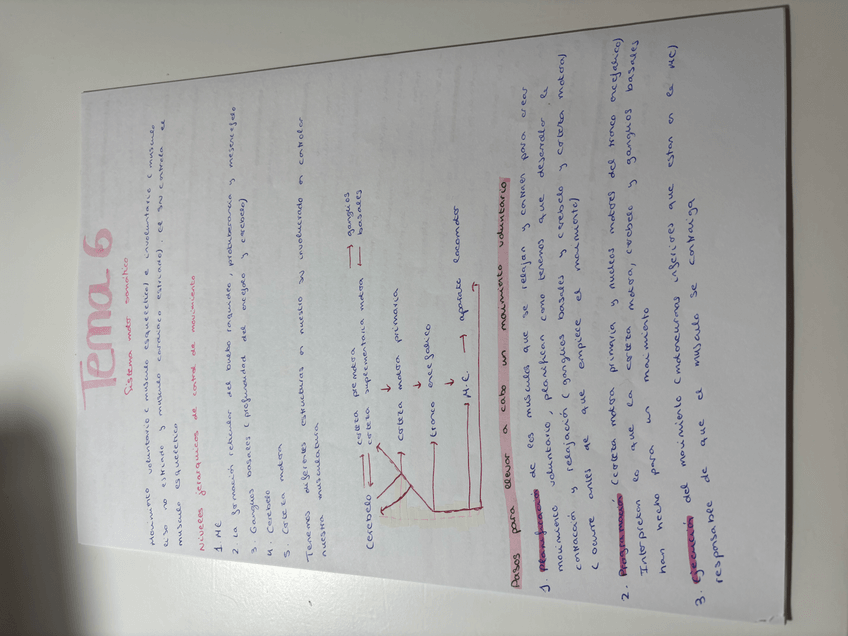 Tema 6
Sistema motor somático
Movimiento voluntario (musculo esquelético) e involuntario (musculo
liso no estriado y musculo cardiaco estriado), el SN controla el
musculo esquelético
Niveles jerarquicos de control de movimiento
1. ME
2. La formación reticular del bulbo raquideo, protuberancia y mesencefalo
3. Ganguos basales (profundidad del encefalo y cerebelo)
4. Cerebelo
5. Corteza motora
Tenemos diferentes estructuras en nuestro SN involucrado en controlar
nuestra musculatura
Cerebelo ⇄ corteza premotora
corteza suplementaria motora ⇄ ganguos basales
↓
corteza motora primaria
↓
tronco encefálico
↓
M.E. → aparato locomotor
Pasos para llevar a cabo un movimiento voluntario
1. Planificación de los musculos que se relajan y contraen para crear
movimiento voluntario, planifican como tenemos que desarrollar la
contracción y relajación (ganguos basales y cerebelo y corteza motora)
(ocurre antes de que empiece el movimiento)
2. Programación (corteza motora primaria y nucleos motores del tronco encefalico)
Interpretan lo que la corteza motora, cerebelo y ganguos basales
han hecho para un movimiento
3. Ejecución del movimiento (motoneuronas inferiores que estan en la ME)
responsable de que el musculo se contraiga